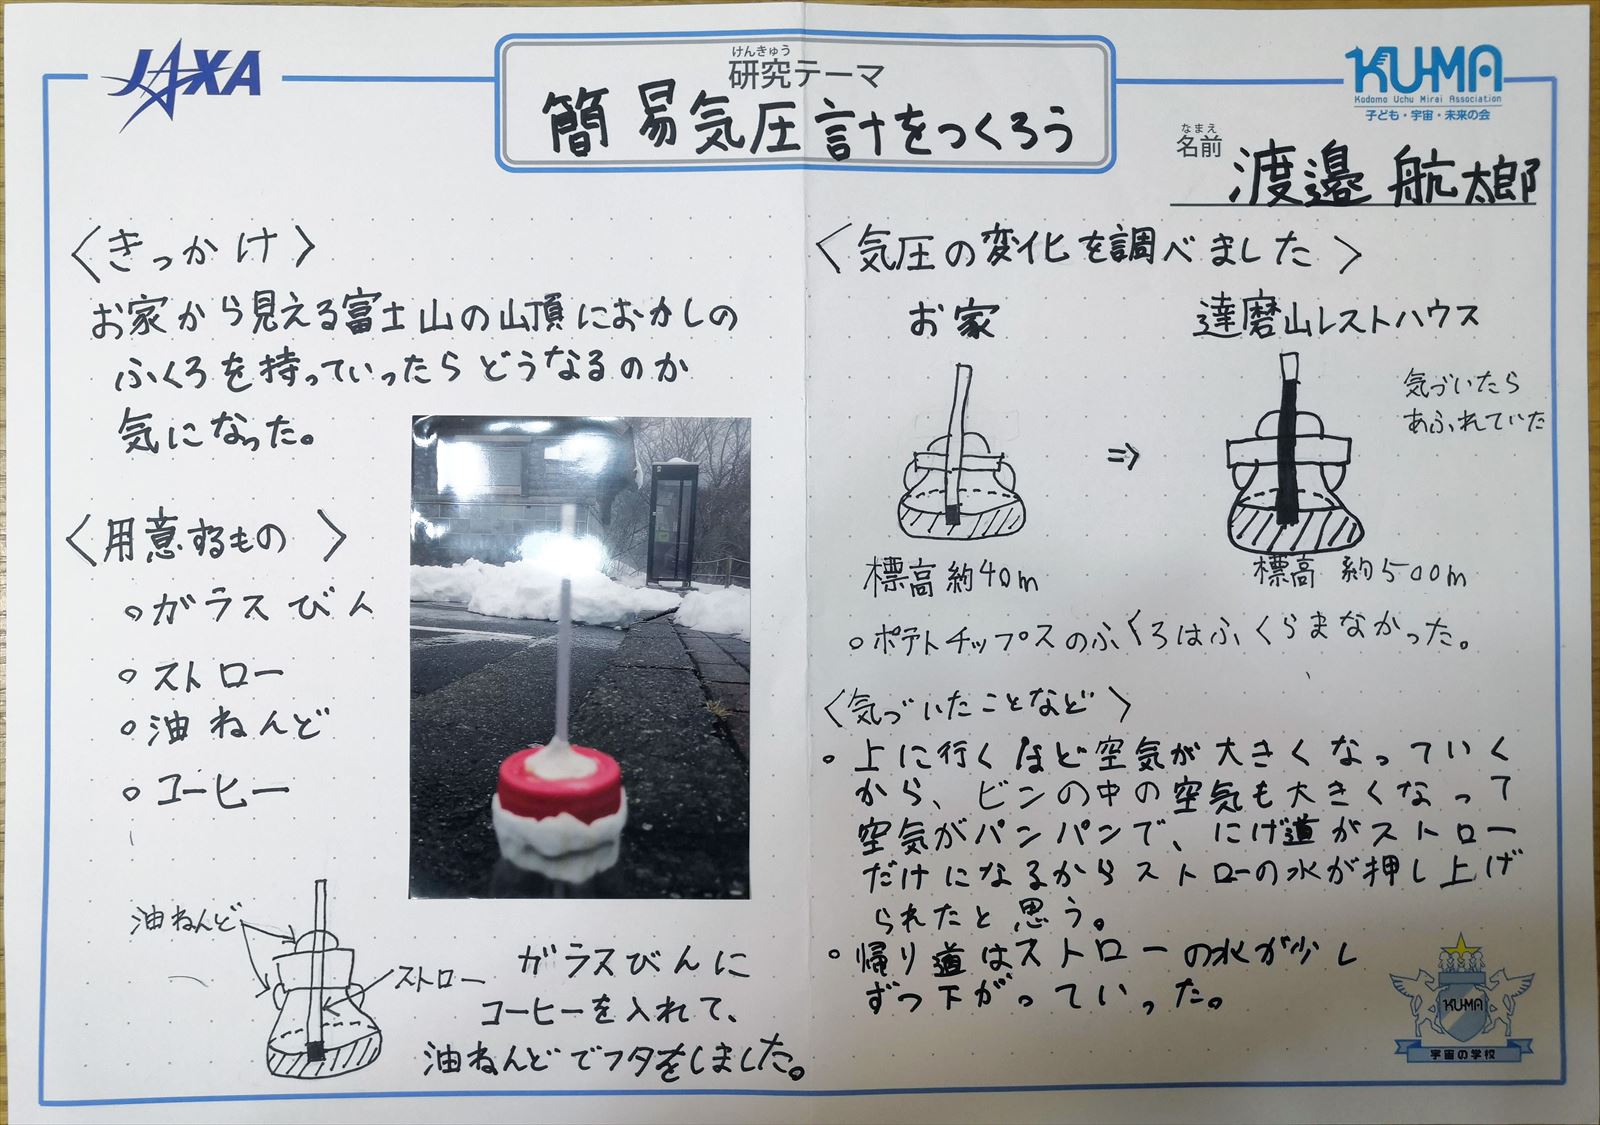 JAXA
けんきゅう
研究テーマ
簡易気圧計をつくろう
KU-MA
Kodomo Uchu Mirai Association
子ども・宇宙・未来の会
なまえ
名前
渡邉 航太郎
〈きっかけ〉
お家から見える富士山の山頂におかしの
ふくろを持っていったらどうなるのか
気になった。
〈用意するもの〉
○ガラスびん
○ストロー
○油ねんど
○コーヒー
油ねんど
ストロー
ガラスびんに
コーヒーを入れて、
油ねんどでフタをしました。
〈気圧の変化を調べました〉
お家
達磨山レストハウス
気づいたら
あふれていた
⇒
標高約40m
標高 約500m
○ポテトチップスのふくろはふくらまなかった。
〈気づいたことなど〉
○上に行くほど空気が大きくなっていく
から、ビンの中の空気も大きくなって
空気がパンパンで、にげ道がストロー
だけになるからストローの水が押し上げ
られたと思う。
○帰り道はストローの水が少し
ずつ下がっていった。
KUMA
宇宙の学校